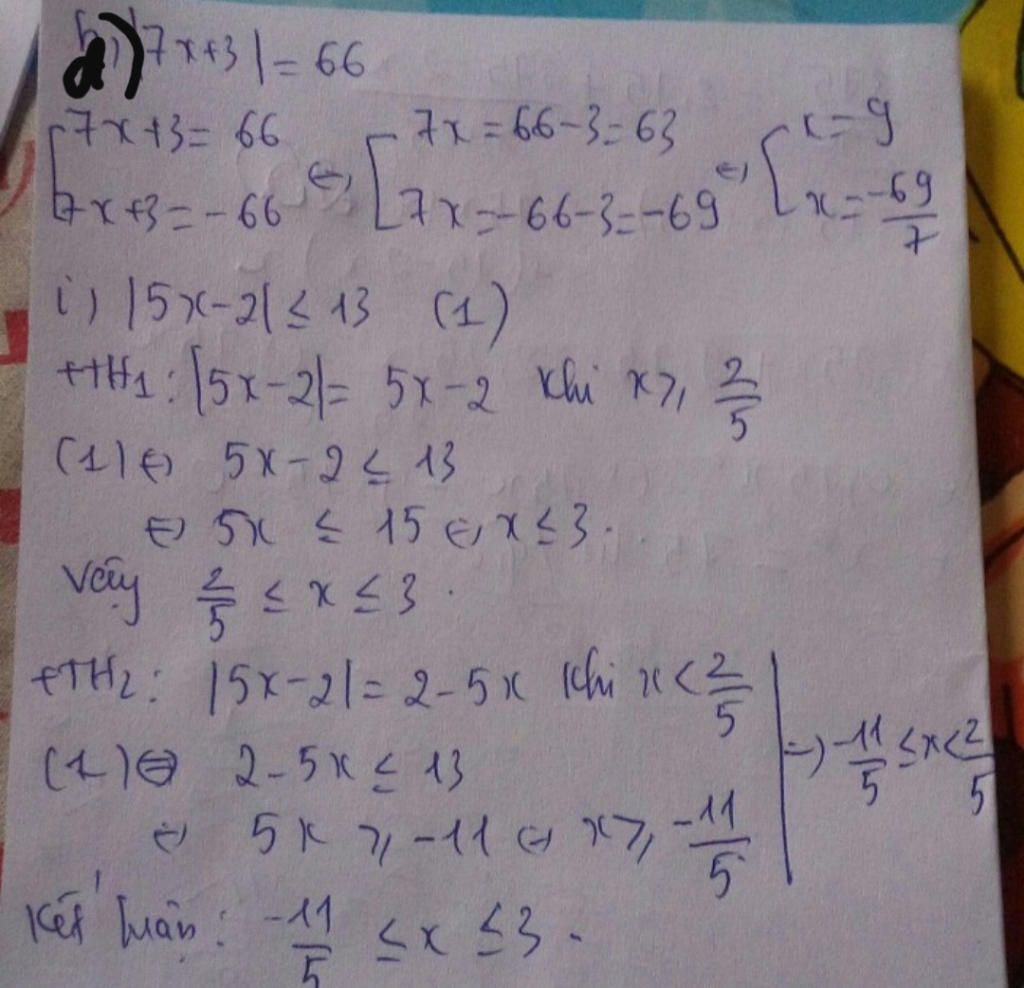 a) |7x+3| = 66
[7x+3 = 66 7x+3 = -66 ⇔ [7x = 66-3 = 63 7x = -66-3 = -69 ⇔ [x = 9 x = -69/7
i) |5x-2| ≤ 13 (1)
+TH1: |5x-2| = 5x-2 khi x ≥ 2/5
(1) ⇔ 5x-2 ≤ 13
⇔ 5x ≤ 15 ⇔ x ≤ 3.
Vậy 2/5 ≤ x ≤ 3.
+TH2: |5x-2| = 2-5x khi x < 2/5
(1) ⇔ 2-5x ≤ 13
⇔ 5x ≥ -11 ⇔ x ≥ -11/5
⇒ -11/5 ≤ x < 2/5
Kết luận: -11/5 ≤ x ≤ 3.